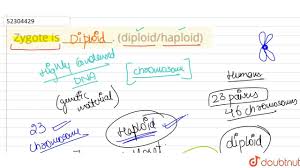 52304429
Zygote is Diploid (diploid/haploid)
Highly condensed
DNA
[chromosome]
(genetic material)
Humans
23 pairs
46 chromosomes
23
chromosome
Haploid
diploid
doubtnut